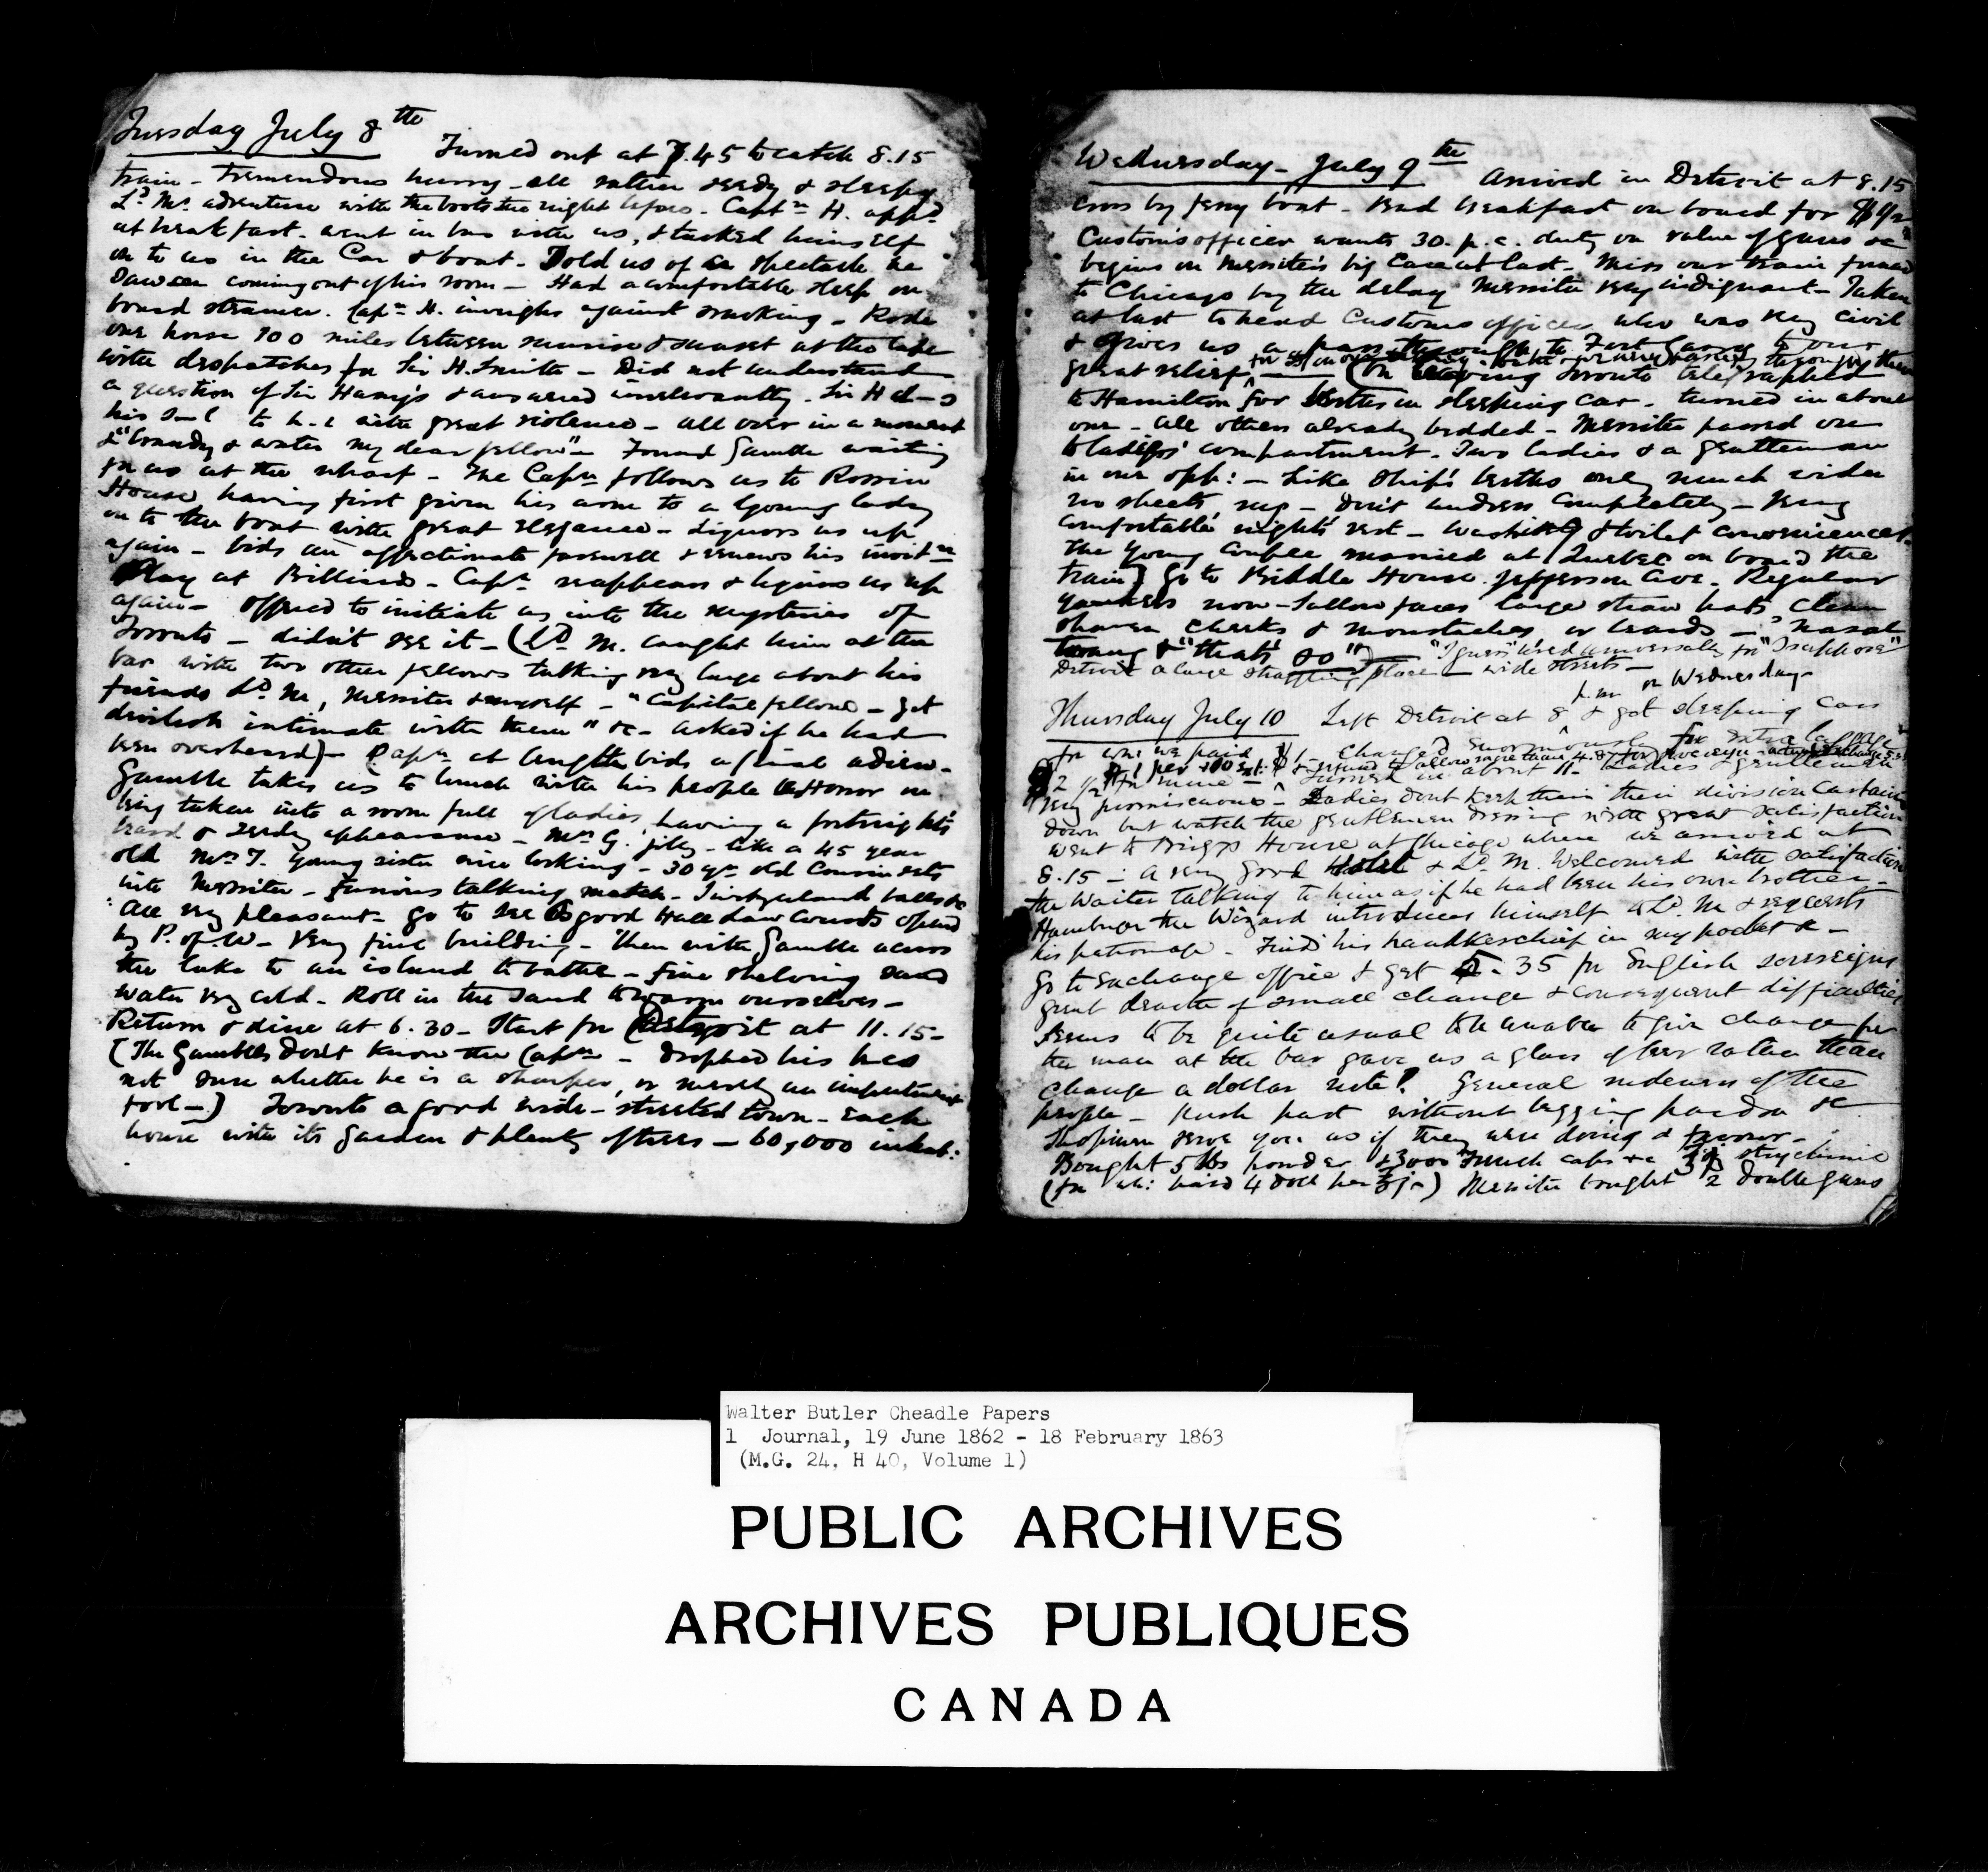 Tuesday July 8th
Turned out at 7.45 to catch 8.15
train - tremendous hurry - all rather seedy & sleepy
Ld. M's adventure with the boots the night before - Captn H. appd
at breakfast - went in bus with us, & tacked himself
on to us in the Car & boat - Told us of a spectacle he
saw coming out of his room - Had a comfortable sleep on
board steamer. Capn H. inveighs against smoking - Rode
one horse 100 miles between sunrise & sunset at the Cape
with despatches for Sir H. Smith - Did not understand
a question of Sir Harry's & answered irrelevantly. Sir H d-s
his s-l to h-l with great violence - all over in a moment
& "brandy & water my dear fellow" - Found Gamble waiting
for us at the wharf - The Capn follows us to Rossin
House, having first given his arm to a young lady
on to the boat with great elegance - Liquors us up
again - bids an affectionate farewell & renews his invitn
Play at Billiards - Capn reappears & liquors us up
again - offered to initiate us into the mysteries of
Toronto - didn't see it - (Ld M. caught him at the
bar with two other fellows talking very large about his
friends Ld M, Messiter & myself - "Capital fellows - get
devilish intimate with them" &c - asked if he had
been overheard) - Capn at length bids a final adieu -
Gamble takes us to lunch with his people Horror on
being taken into a room full of ladies, having a fortnight's
beard & seedy appearance - Mrs G. jolly - like a 45 year
old Mrs T. Young sister nice looking - 30 yr old Cousin
into Messiter - furious talking match - Switzerland balls &c
All very pleasant - go to see Osgood Hall Law Courts opened
by P. of W - Very fine building - Then with Gamble across
the lake to an island to bathe - fine shelving sand
water very cold - Roll in the sand to warm ourselves -
Return & dine at 6.30 - Start for Detroit at 11.15 -
(The Gambles don't know the Capn - dropped his
not sure whether he is a sharper, or merely an impertinent
fool -) Toronto a good wide-streeted town - each
house with its garden & plenty of trees - 60,000 inhab:
Wednesday - July 9th
Arrived in Detroit at 8.15
cross by ferry boat - Bad breakfast on board for
Customs officer wants 30. p.c. duty on value of guns &c
begins on Messiter's big Case at last - Miss our train
to Chicago by the delay Messiter very indignant - Taken
at last to head Customs officer who was very civil
& gives us a pass through to Fort Garry to our
great relief, (On leaving Toronto telegraphed
to Hamilton for berths in sleeping car - turned in about
one - all others already bedded - Messiter passed on
to ladies' compartment. Two ladies & a gentleman
in one opp: - Like ship's berths only much wider
no sheets, rug - don't undress completely - Very
comfortable night's rest - Washing & toilet conveniences.
The young couple married at Quebec on board the
train) go to Biddle House. Jefferson Ave. Regular
Yankees now - sallow faces large straw hats, clean
shaven cheeks & moustaches or beards - Nasal
twang & "that's so") - "I guess" used universally for "I suppose"
Detroit a large straggling place - wide streets -
Thursday July 10
Left Detroit at 8 p.m on Wednesday - & got sleeping Cars
for wh: we paid $1 - charged enormously for extra luggage
$2 1/2 for mine - Turned in about 11 - Ladies & gentlemen
very promiscuous - Ladies don't keep their division Curtains
down but watch the gentlemen dressing with great satisfaction
went to Briggs House at Chicago where we arrived at
8.15 - a very good Hotel & Ld. M. Welcomed with satisfaction
the Waiter talking to him as if he had been his own brother -
the Wizard introduces himself to Ld. M & requests
his patronage - Finds his handkerchief in my pocket &c -
Go to Exchange office & get 5.35 for English sovereigns
great dearth of small change & consequent difficulties
seems to be quite usual to be unable to give change for
the man at the bar gave us a glass of beer rather than
change a dollar note! General rudeness of the
people - push past without begging pardon &c
Shopmen serve you as if they were doing a favour -
Bought 5 lbs powder & 3000 French caps &c strychnine
(for wh: paid 4 doll per) Messiter bought 2 double guns
Walter Butler Cheadle Papers
1 Journal, 19 June 1862 - 18 February 1863
(M.G. 24, H 40, Volume 1)
PUBLIC ARCHIVES
ARCHIVES PUBLIQUES
CANADA